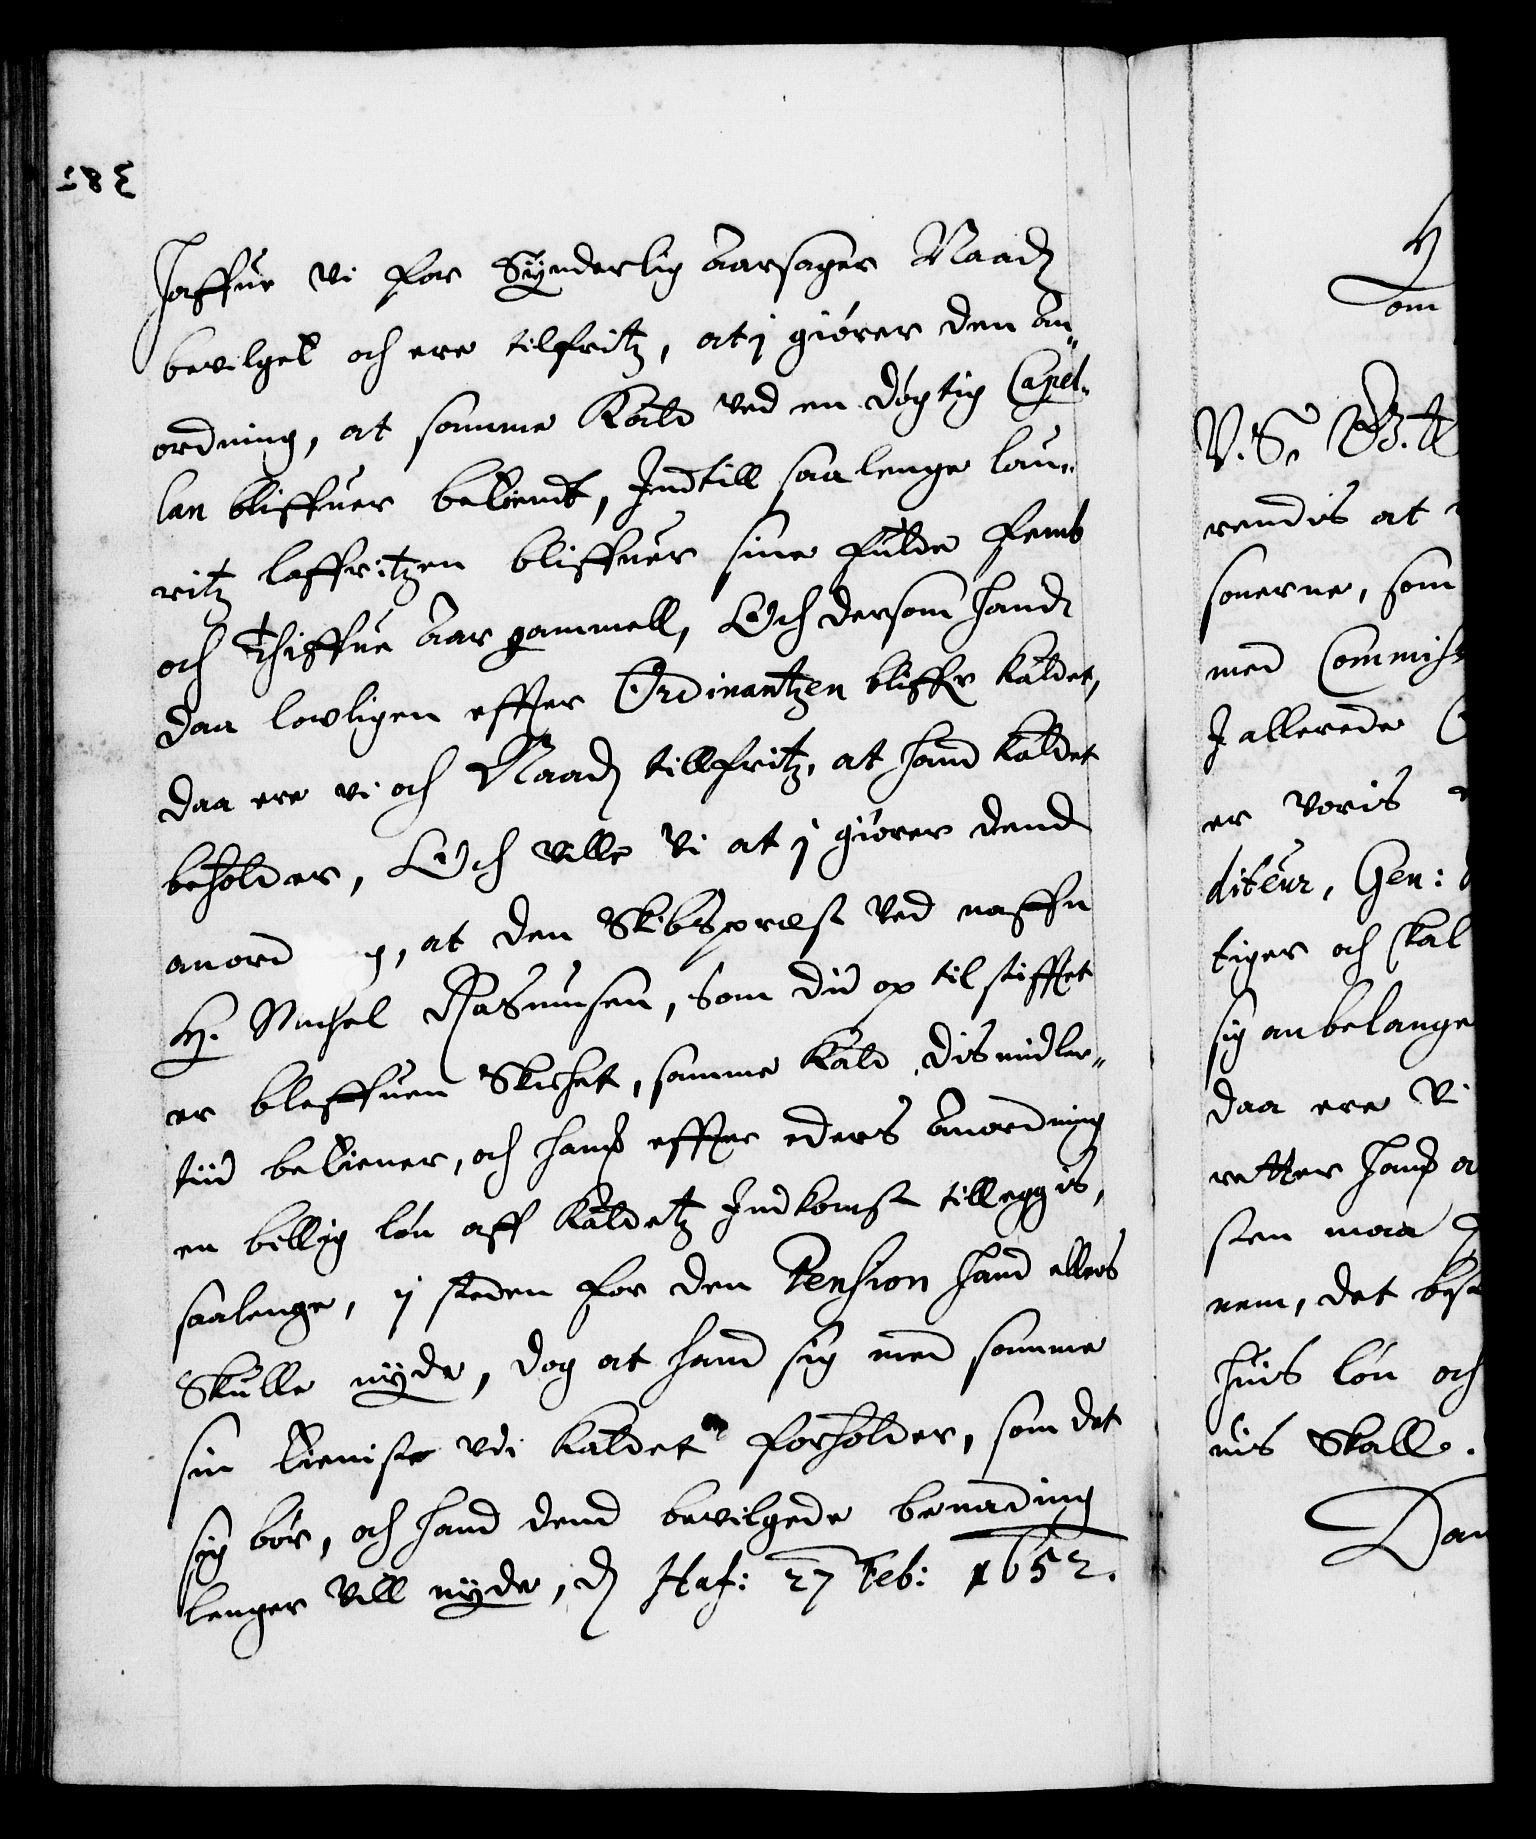 381
Haffue vi for Synderlig Aarsager Naad:
bevilget och ere tilfritz, at j giører den an-
ordning, at samme Kald ved en døgtig Capel-
lan bliffuer betient, Indtill saa lenge Lau-
ritz Laffritzen bliffuer sine fulde femb
och Thiffue Aar gammell, Och dersom hand
daa lovligen effter Ordinantzen bliffr kaldet,
daa ere vi och Naad: tillfritz, at hand kaldet
beholder, Och ville Vi at j giører dend
anord g, at den Skibspræst ved naffn
H. Michel Rasmusen, som did op til stifftet
er bleffuen Skichet, samme Kald dismidler-
tiid betiener, och hans effter eders Anordning
en billig løn aff Kaldetz Indkomst tilleggis,
saalenge, j steden for den Pension hand ellers
Skulle nyde, dog at hand sig med samme
sin tieniste vdi Kaldet forholder, som det
sig bør, och hand dend bevilgede benading
lenger vill nyde, D: Haf: 27 Feb: 1652.
H
om
V. S. G. tt
rendis at
sonerne, som
med Commiss
I allerede
er voris
diteur, Gen:
tiger och skal
sig anbelange
daa ere Vi
retter hans
sten maa
nem, det
huis løn och
nis Skall.
Dan